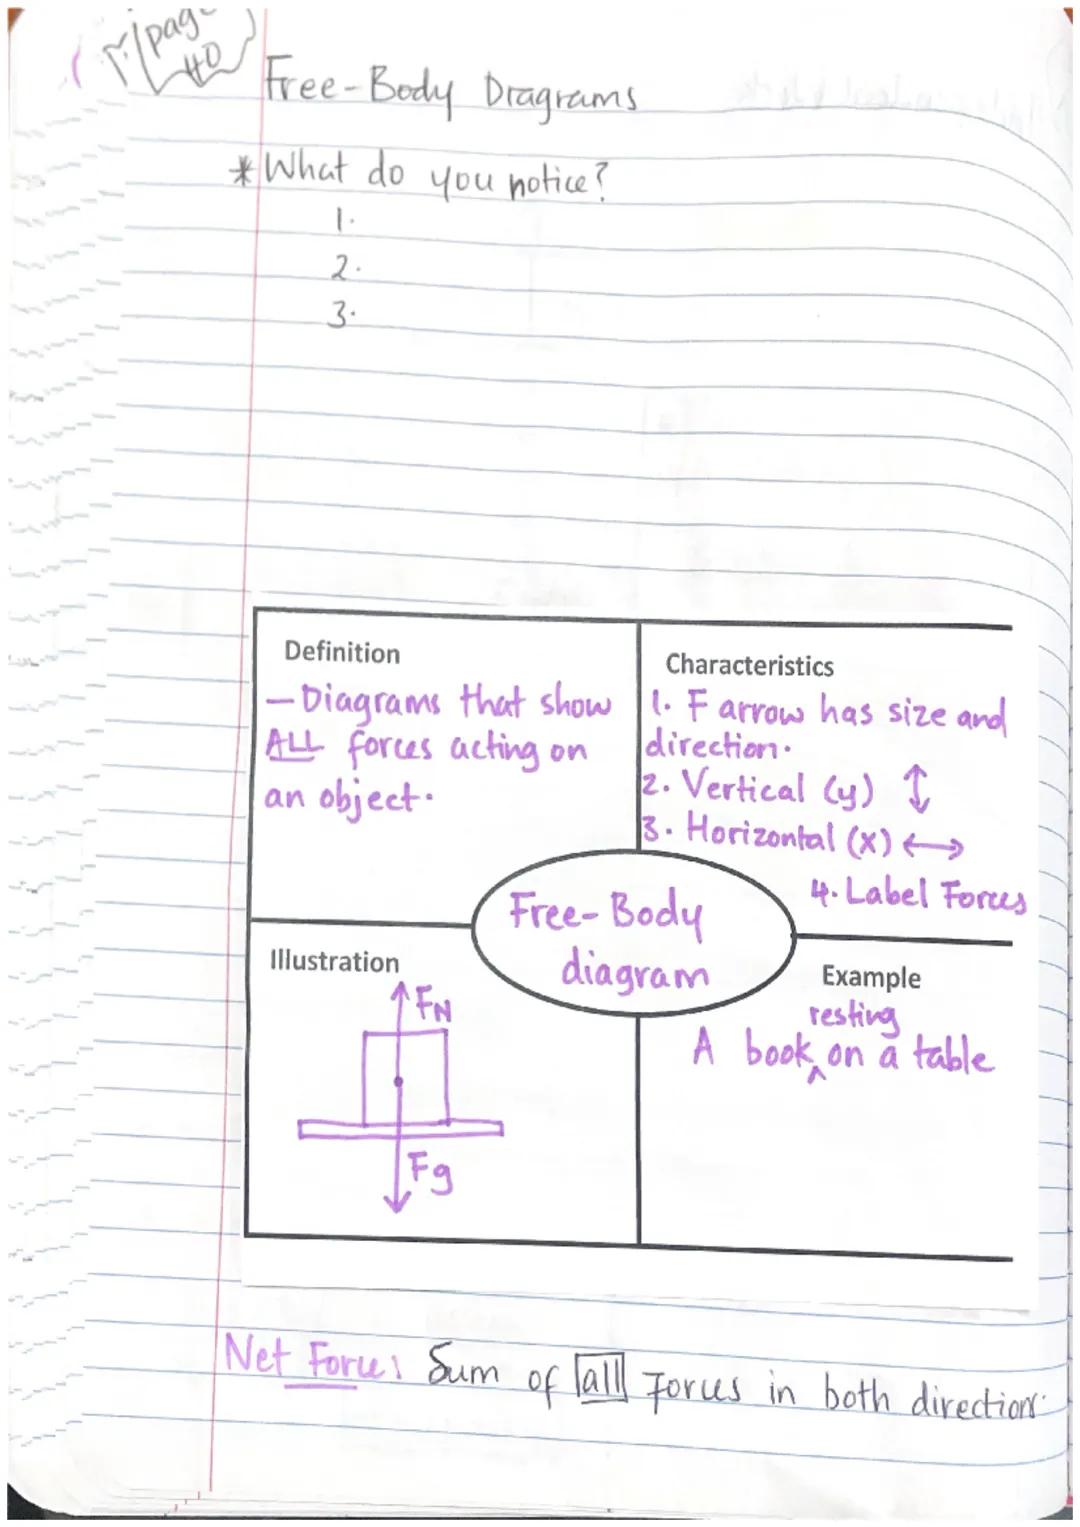 page
40
Free-Body Diagrams
* What do you notice?
1.
2.
3.
Definition
– Diagrams that show
ALL forces acting on
an object.
Characteristics
1. F arrow has size and
direction.
2. Vertical (y) ↕
3. Horizontal (x) ↔
4. Label Forces
Free-Body
diagram
Illustration
FN
Fg
Example
resting
A book ^ on a table
Net Force: Sum of all Forces in both directions.